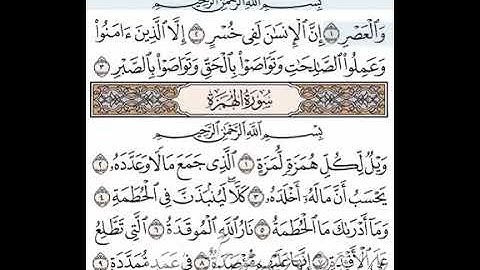 بِسْمِ ٱللَّهِ ٱلرَّحْمَٰنِ ٱلرَّحِيمِ
وَٱلْعَصْرِ ١ إِنَّ ٱلْإِنسَٰنَ لَفِى خُسْرٍ ٢ إِلَّا ٱلَّذِينَ ءَامَنُوا۟
وَعَمِلُوا۟ ٱلصَّٰلِحَٰتِ وَتَوَاصَوْا۟ بِٱلْحَقِّ وَتَوَاصَوْا۟ بِٱلصَّبْرِ ٣
سُورَةُ الهُمَزَةِ
بِسْمِ ٱللَّهِ ٱلرَّحْمَٰنِ ٱلرَّحِيمِ
وَيْلٌ لِّكُلِّ هُمَزَةٍ لُّمَزَةٍ ١ ٱلَّذِى جَمَعَ مَالًا وَعَدَّدَهُۥ ٢
يَحْسَبُ أَنَّ مَالَهُۥٓ أَخْلَدَهُۥ ٣ كَلَّا ۖ لَيُنۢبَذَنَّ فِى ٱلْحُطَمَةِ ٤
وَمَآ أَدْرَىٰكَ مَا ٱلْحُطَمَةُ ٥ نَارُ ٱللَّهِ ٱلْمُوقَدَةُ ٦ ٱلَّتِى تَطَّلِعُ
عَلَى ٱلْأَفْـِٔدَةِ ٧ إِنَّهَا عَلَيْهِم مُّؤْصَدَةٌ ٨ فِى عَمَدٍ مُّمَدَّدَةٍۭ ٩